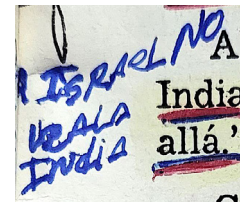 A ISRAEL NO
VEALA
INDIA
A
India
allá.'